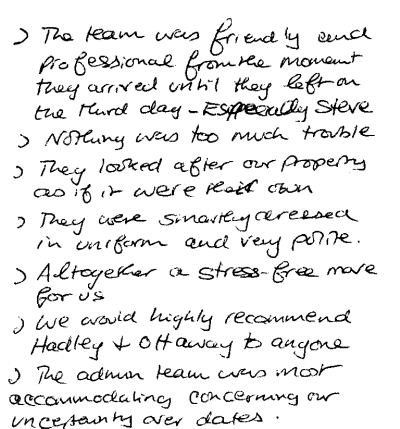 ) The team was friendly and
professional from the moment
they arrived until they left on
the third day - Especially Steve
) Nothing was too much trouble
) They looked after our property
as if it were their own
) They were smartly dressed
in uniform and very polite.
) Altogether a stress-free move
for us
) We would highly recommend
Hadley + Ottaway to anyone
) The admin team was most
accommodating concerning our
uncertainty over dates.